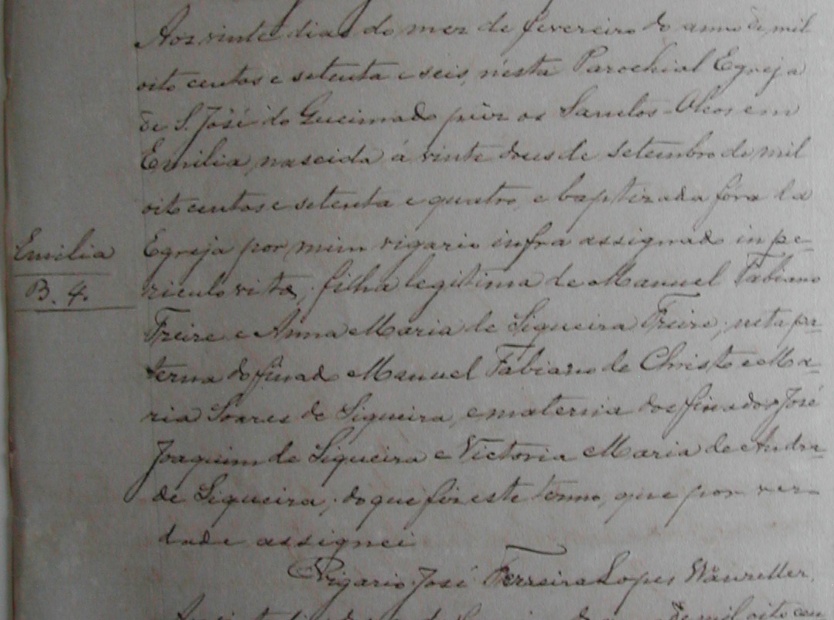 Aos vinte dias do mez de fevereiro do anno de mil
oito centos e setenta e seis, n'esta Parochial Egreja
de S. José do Queimado puz os Santos-Oleos em
Emilia, nascida á vinte dous de setembro de mil
oito centos e setenta e quatro, e baptizada fóra da
Emilia
B. 4.
Egreja por mim vigario infra assignado in pe-
riculo vitæ; filha legitima de Manuel Fabiano
Freire e Anna Maria de Siqueira Freire; neta pa-
terna do finado Manuel Fabiano de Christo e Ma-
ria Soares de Siqueira, e materna dos finados José
Joaquim de Siqueira e Victoria Maria de Andra-
de Siqueira; do que fiz este termo, que por ver-
dade assignei
Vigario José Ferreira Lopes